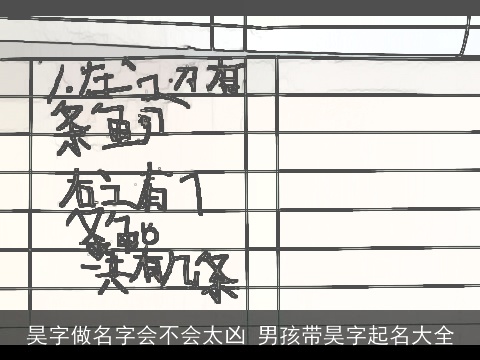 1.左有
条鱼
右江有7
条鱼。
一共有几条
昊字做名字会不会太凶 男孩带昊字起名大全